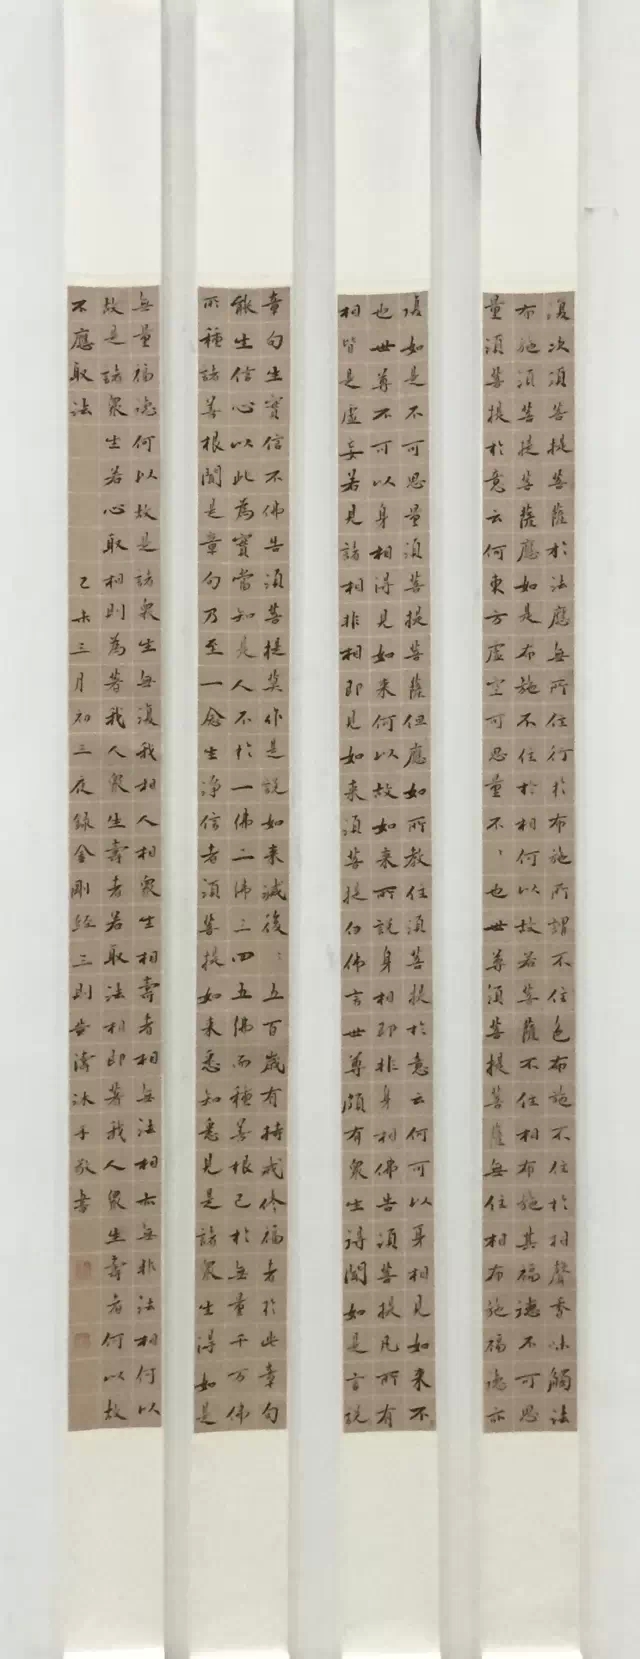 復次須菩提菩薩於法應無所住行於布施所謂不住色布施不住於相聲香味觸法
布施須菩提菩薩應如是布施不住於相何以故若菩薩不住相布施其福德不可思
量須菩提於意云何東方虛空可思量不、也世尊須菩提菩薩無住相布施福德亦
復如是不可思量須菩提菩薩但應如所教住須菩提於意云何可以身相見如來不
也世尊不可以身相得見如來何以故如來所說身相即非身相佛告須菩提凡所有
相皆是虛妄若見諸相非相即見如來須菩提白佛言世尊頗有眾生得聞如是言說
章句生實信不佛告須菩提莫作是說如來滅後：五百歲有持戒修福者於此章句
能生信心以此為實當知是人不於一佛二佛三四五佛而種善根已於無量千万佛
所種諸善根聞是章句乃至一念生淨信者須菩提如來悉知悉見是諸眾生得如是
無量福德何以故是諸眾生無復我相人相眾生相壽者相無法相亦無非法相何以
故是諸眾生若心取相則為著我人眾生壽者若取法相即著我人眾生壽者何以故
不應取法
乙未三月初三夜錄金剛經三則 濤冰手敬書